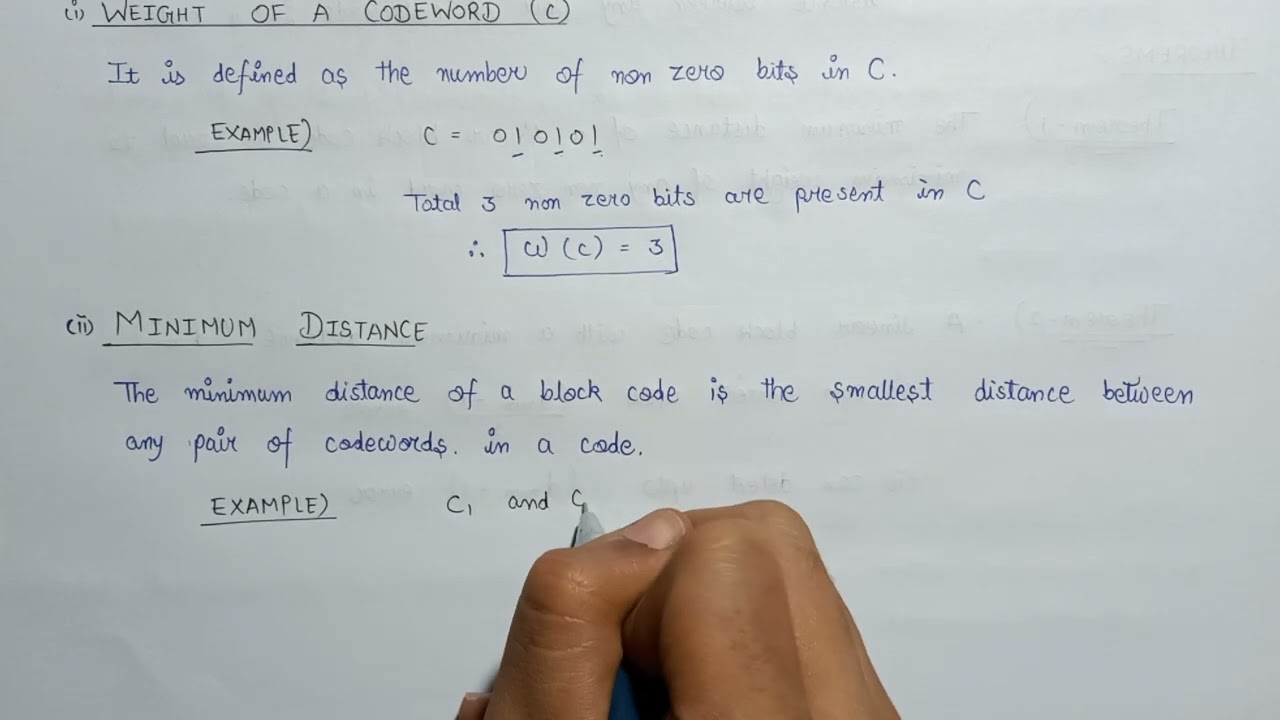 (i) WEIGHT OF A CODEWORD (C)
It is defined as the number of non zero bits in C.
EXAMPLE) C = 010101
Total 3 non zero bits are present in C
∴ W(C) = 3
(ii) MINIMUM DISTANCE
The minimum distance of a block code is the smallest distance between
any pair of codewords. in a code.
EXAMPLE) C₁ and C